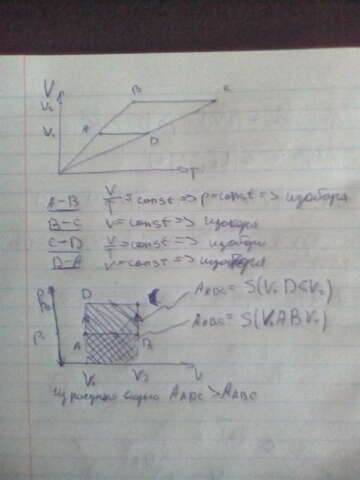 V
B
C
V₂
V₁
A
D
T
A-B V/T = const => p = const => изобара
B-C V = const => изохора
C-D V/T = const => изобара
D-A V = const => изохора
P
D
P₂
A_ADC = S(V₁DCV₂)
A_ABC = S(V₁ABV₂)
P₁
A
B
V₁
V₂
V
Из рисунка видно A_ADC > A_ABC